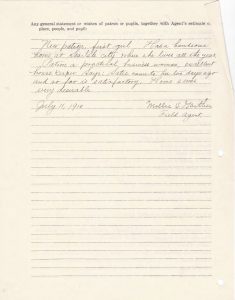 Any general statement or wishes of patron or pupils, together with Agent's estimate o.
place, people, and pupil:
New patron, first girl. Has a handsome
home at city where she lives all the year.
Patron a practical, business woman, excellent
house keeper. Says Katie came to her ten days ago
and so far is satisfactory. Home a most
very desirable
July 11, 1910 Mollie V. Gaither
Field Agent